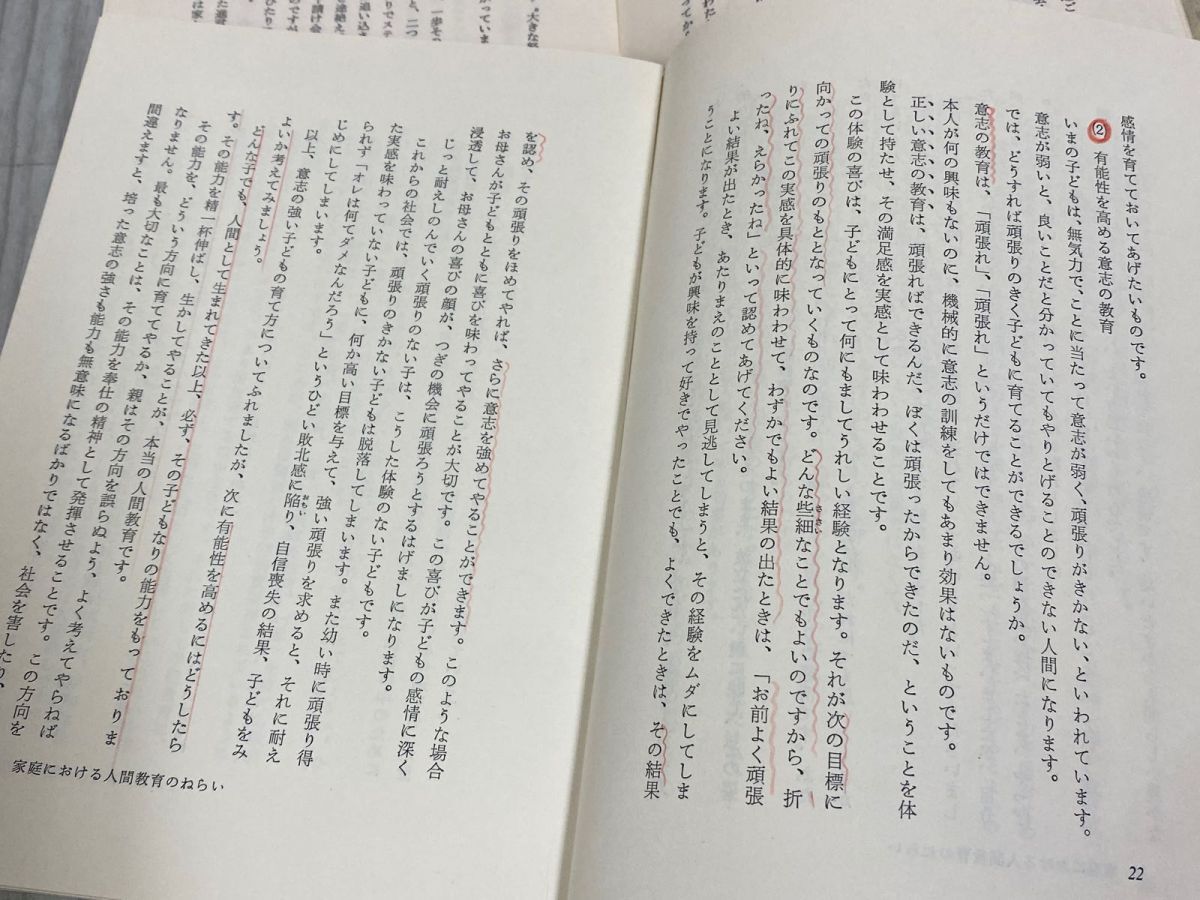 感情を育てておいてあげたいものです。
② 有能性を高める意志の教育
いまの子どもは、無気力で、ことに当たって意志が弱く、頑張りがきかない、といわれています。
意志が弱いと、良いことだと分かっていてもやりとげることのできない人間になります。
では、どうすれば頑張りのきく子どもに育てることができるでしょうか。
意志の教育は、「頑張れ」、「頑張れ」というだけではできません。
本人が何の興味もないのに、機械的に意志の訓練をしてもあまり効果はないものです。
正しい意志の教育は、頑張ればできるんだ、ぼくは頑張ったからできたのだ、ということを体
験として持たせ、その満足感を実感として味わわせることです。
この体験の喜びは、子どもにとって何にもましてうれしい経験となります。それが次の目標に
向かっての頑張りのもととなっていくものなのです。どんな些細なことでもよいのですから、折
りにふれてこの実感を具体的に味わわせて、わずかでもよい結果の出たときは、「お前よく頑張
ったね、えらかったね」といって認めてあげてください。
よい結果が出たとき、あたりまえのこととして見逃してしまうと、その経験をムダにしてしま
うことになります。子どもが興味を持って好きでやったことでも、よくできたときは、その結果
22
を認め、その頑張りをほめてやれば、さらに意志を強めてやることができます。このような場合
お母さんが子どもとともに喜びを味わってやることが大切です。この喜びが子どもの感情に深く
浸透して、お母さんの喜びの顔が、つぎの機会に頑張ろうとするはげましになります。
じっと耐えしのんでいく頑張りのない子は、こうした体験のない子どもです。
これからの社会では、頑張りのきかない子どもは脱落してしまいます。また幼い時に頑張り得
た実感を味わっていない子どもに、何か高い目標を与えて、強い頑張りを求めると、それに耐え
られず「オレは何てダメなんだろう」というひどい敗北感に陥り、自信喪失の結果、子どもをみ
じめにしてしまいます。
以上、意志の強い子どもの育て方についてふれましたが、次に有能性を高めるにはどうしたら
よいか考えてみましょう。
どんな子でも、人間として生まれてきた以上、必ず、その子どもなりの能力をもっておりま
す。その能力を精一杯伸ばし、生かしてやることが、本当の人間教育です。
その能力を、どういう方向に育ててやるか、親はその方向を誤らぬよう、よく考えてやらねば
なりません。最も大切なことは、その能力を奉仕の精神として発揮させることです。この方向を
間違えますと、培った意志の強さも能力も無意味になるばかりではなく、社会を害したり、
家庭における人間教育のねらい